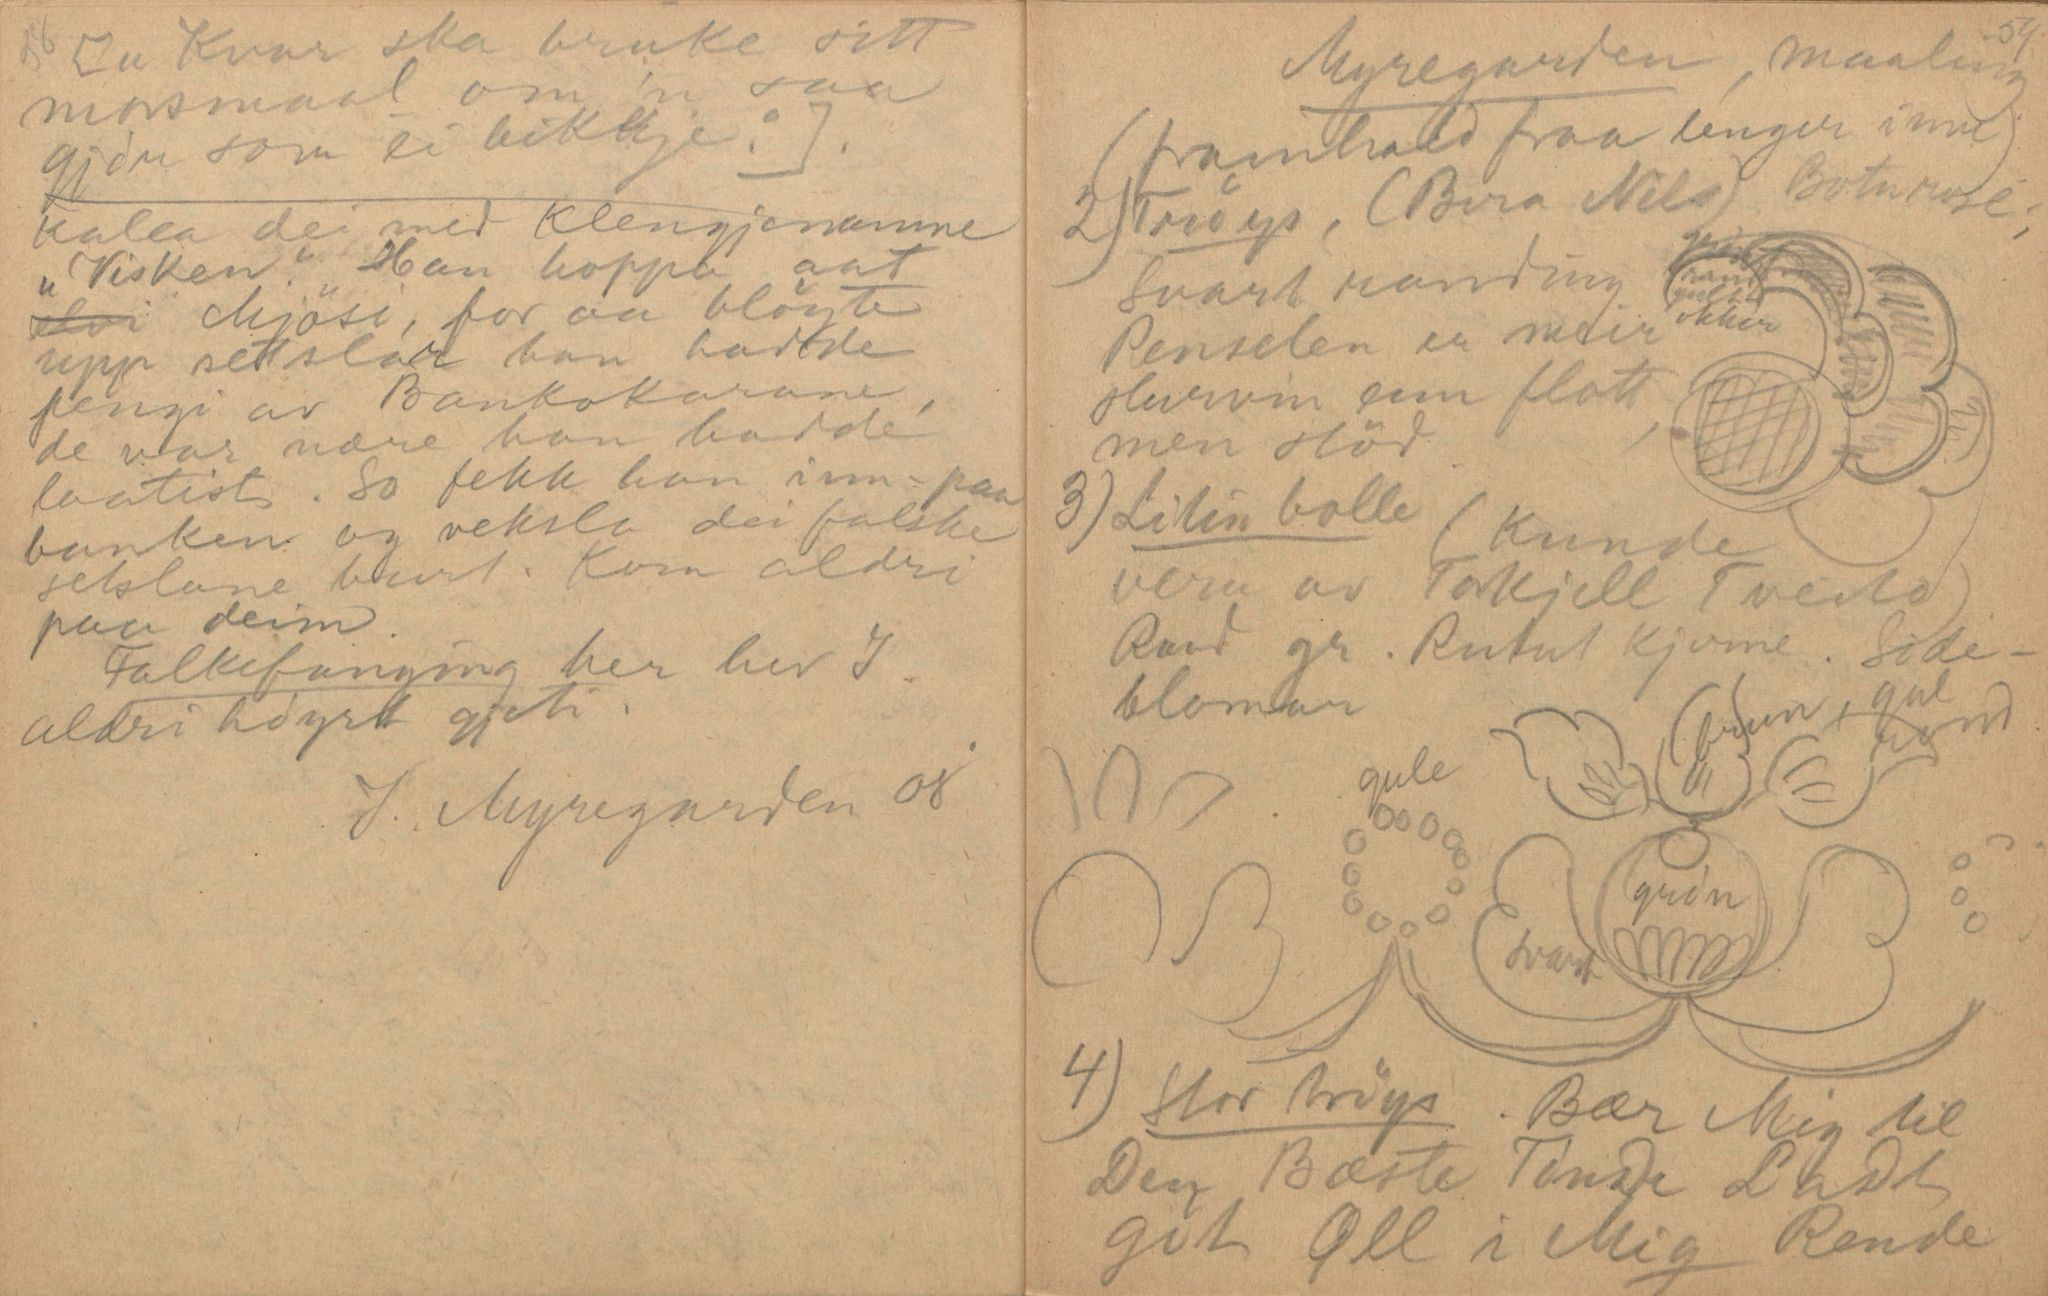 58
Ju Kvar ska bruke sitt
morsmaal om 'n saa
gjöu som ei bikkje:].
kalla dei med klengjenamne
"Visken." Han hoppa aat
elvi Mjösi, for aa blöyte
upp setslar han hadde
fengi av Bankokarane,
de var nære han hadde
laatist. So fekk han inn-paa
banken og veksla dei falske
setslane burt. Kom aldri
paa deim.
Falkefanging her hev I.
aldri höyrt gjeti.
I. Myregarden 08
59
Myregarden, maaling
(framhald fraa lenger inne)
2) Tröys, (Bera Nils) Botnrosé;
Svart randing
Penselen er meir
sturvin enn flott,
men stöd
rand
gul
okker
3) Litin bolle (Kunde
vera av Torkjell Tveito)
Rand gr. Rutut kjerne. Side-
blomar
brun, gul
rand
gule
grön
svart
4) Stor tröys. Bær Mig til
Den Bæste Tönde Ladt
got Øll i Mig Rende